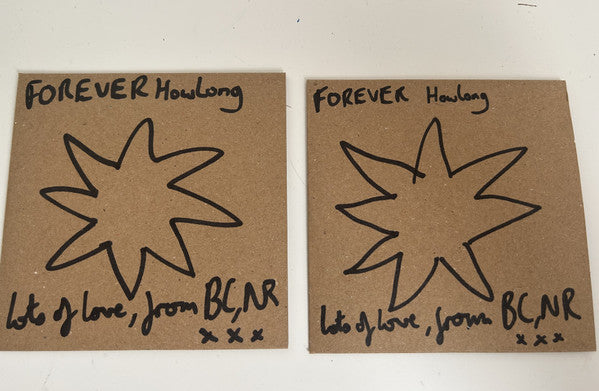 FOREVER HowLong
Lots of love, from BC,NR
x x x
FOREVER HowLong
Lots of love, from BC,NR
x x x